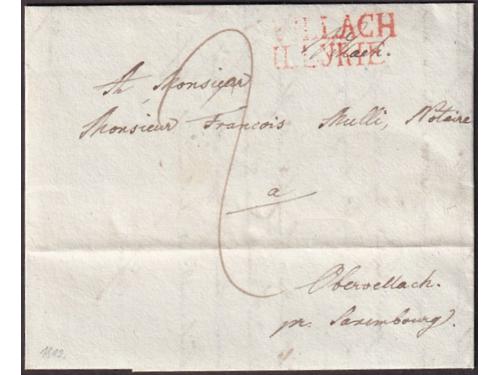 VILLACH
ILLYRIE
A Monsieur
Monsieur Francois Mulli, Notaire
a
Obervellach.
pr. Saxembourg.
2